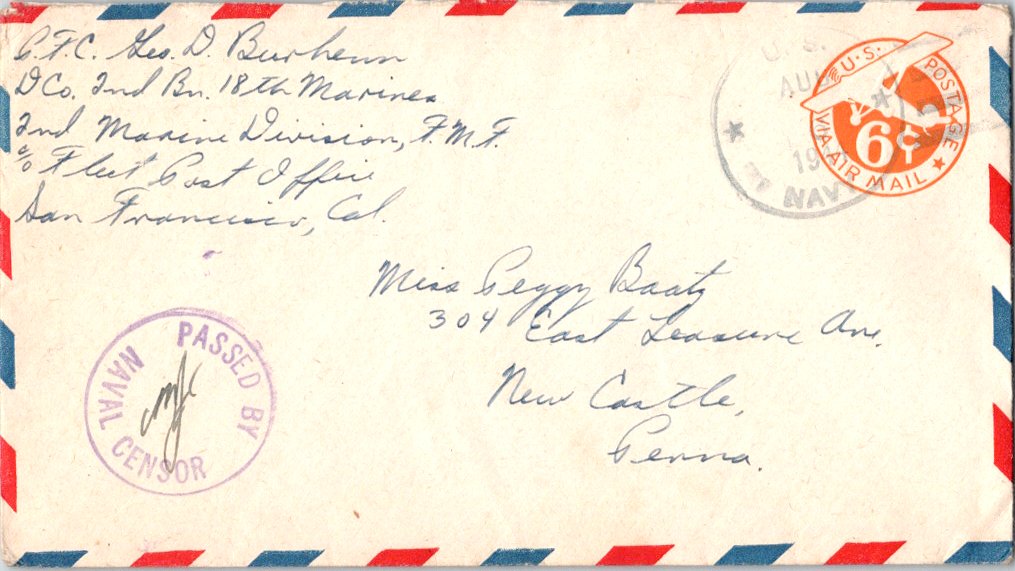 P.F.C. Geo. D. Burhenn
D Co. 2nd Bn. 18th Marines
2nd Marine Division, F.M.F.
c/o Fleet Post Office
San Francisco, Cal.
U.S.
AU
19
NAVY
U.S. POSTAGE
6¢
VIA AIR MAIL
Miss Peggy Baatz
304 East Leasure Ave.
New Castle,
Penna.
PASSED BY
NAVAL CENSOR